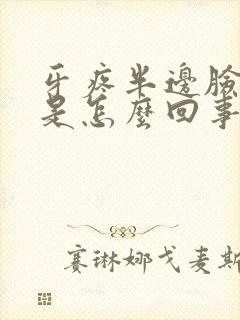 牙疼半邊臉
是怎麼回事
賽琳娜戈麦斯